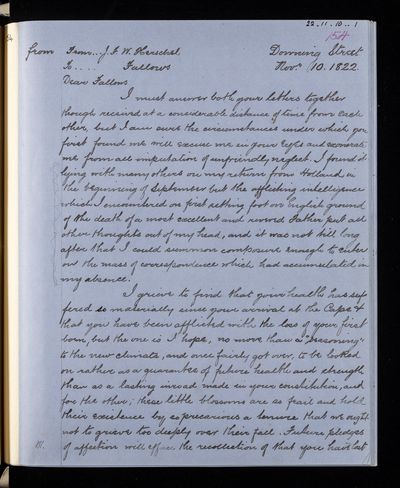 22.11.10..1
154
from From... J. F. W. Herschel. Downing Street
To..... Fallows Nov.r 10. 1822.
Dear Fallows
I must answer both your letters together
though received at a considerable distance of time from each
other, but I am sure the circumstances under which your
first found me will excuse me in your eyes and exonerate
me from all imputation of unfriendly neglect. I found it
lying with many others on my return from Holland in
the beginning of September but the afflicting intelligence
which I encountered on first setting foot on English ground
of the death of a most excellent and revered Father put all
other thoughts out of my head, and it was not till long
after that I could summon composure enough to enter
on the mass of correspondence which had accumulated in
my absence.
I grieve to find that your health has suf
fered so materially since your arrival at the Cape &
that you have been afflicted with the loss of your first
born, but the one is I hope, no more than a "seasoning"
to the new climate, and once fairly got over, to be looked
on rather as a guarantee of future health and strength
than as a lasting inroad made in your constitution, and
for the other; these little blossoms are so frail and hold
their existence by so precarious a tenure that we ought
not to grieve too deeply over their fall. Future pledges
of affection will efface the recollection of that you have lost